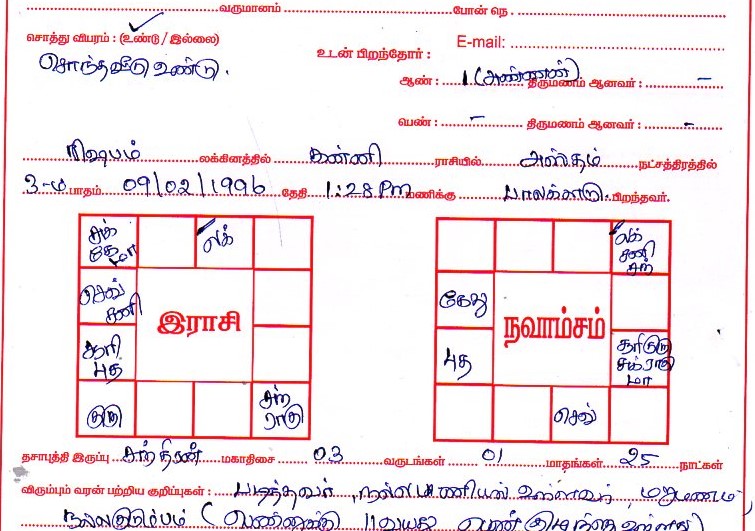 வருமானம் போன் நெ.
சொத்து விபரம் : (உண்டு / இல்லை)
உடன் பிறந்தோர் : E-mail:
சொந்தவீடு உண்டு.
ஆண் : 1 (அண்ணன்) திருமணம் ஆனவர் : –
பெண் : – திருமணம் ஆனவர் : –
ரிஷபம் லக்கினத்தில் கன்னி ராசியில் அஸ்தம் நட்சத்திரத்தில்
3-ம் பாதம் 09/02/1996 தேதி 1:28 Pm மணிக்கு பாலக்காடு பிறந்தவர்.
சுக் கேது மா
லக்
செவ் சனி
இராசி
சூரி புத
குரு
சந் ராகு
லக் சனி சந்
கேது
நவாம்சம்
புத
சூரி குரு சுக் ராகு மா
செவ்
தசாபுத்தி இருப்பு சந்திரன் மகாதிசை 03 வருடங்கள் 01 மாதங்கள் 25 நாட்கள்
விரும்பும் வரன் பற்றிய குறிப்புகள் : படித்தவர், நல்ல பணியில் உள்ளவர், மறுமணம்
நல்ல குடும்பம்